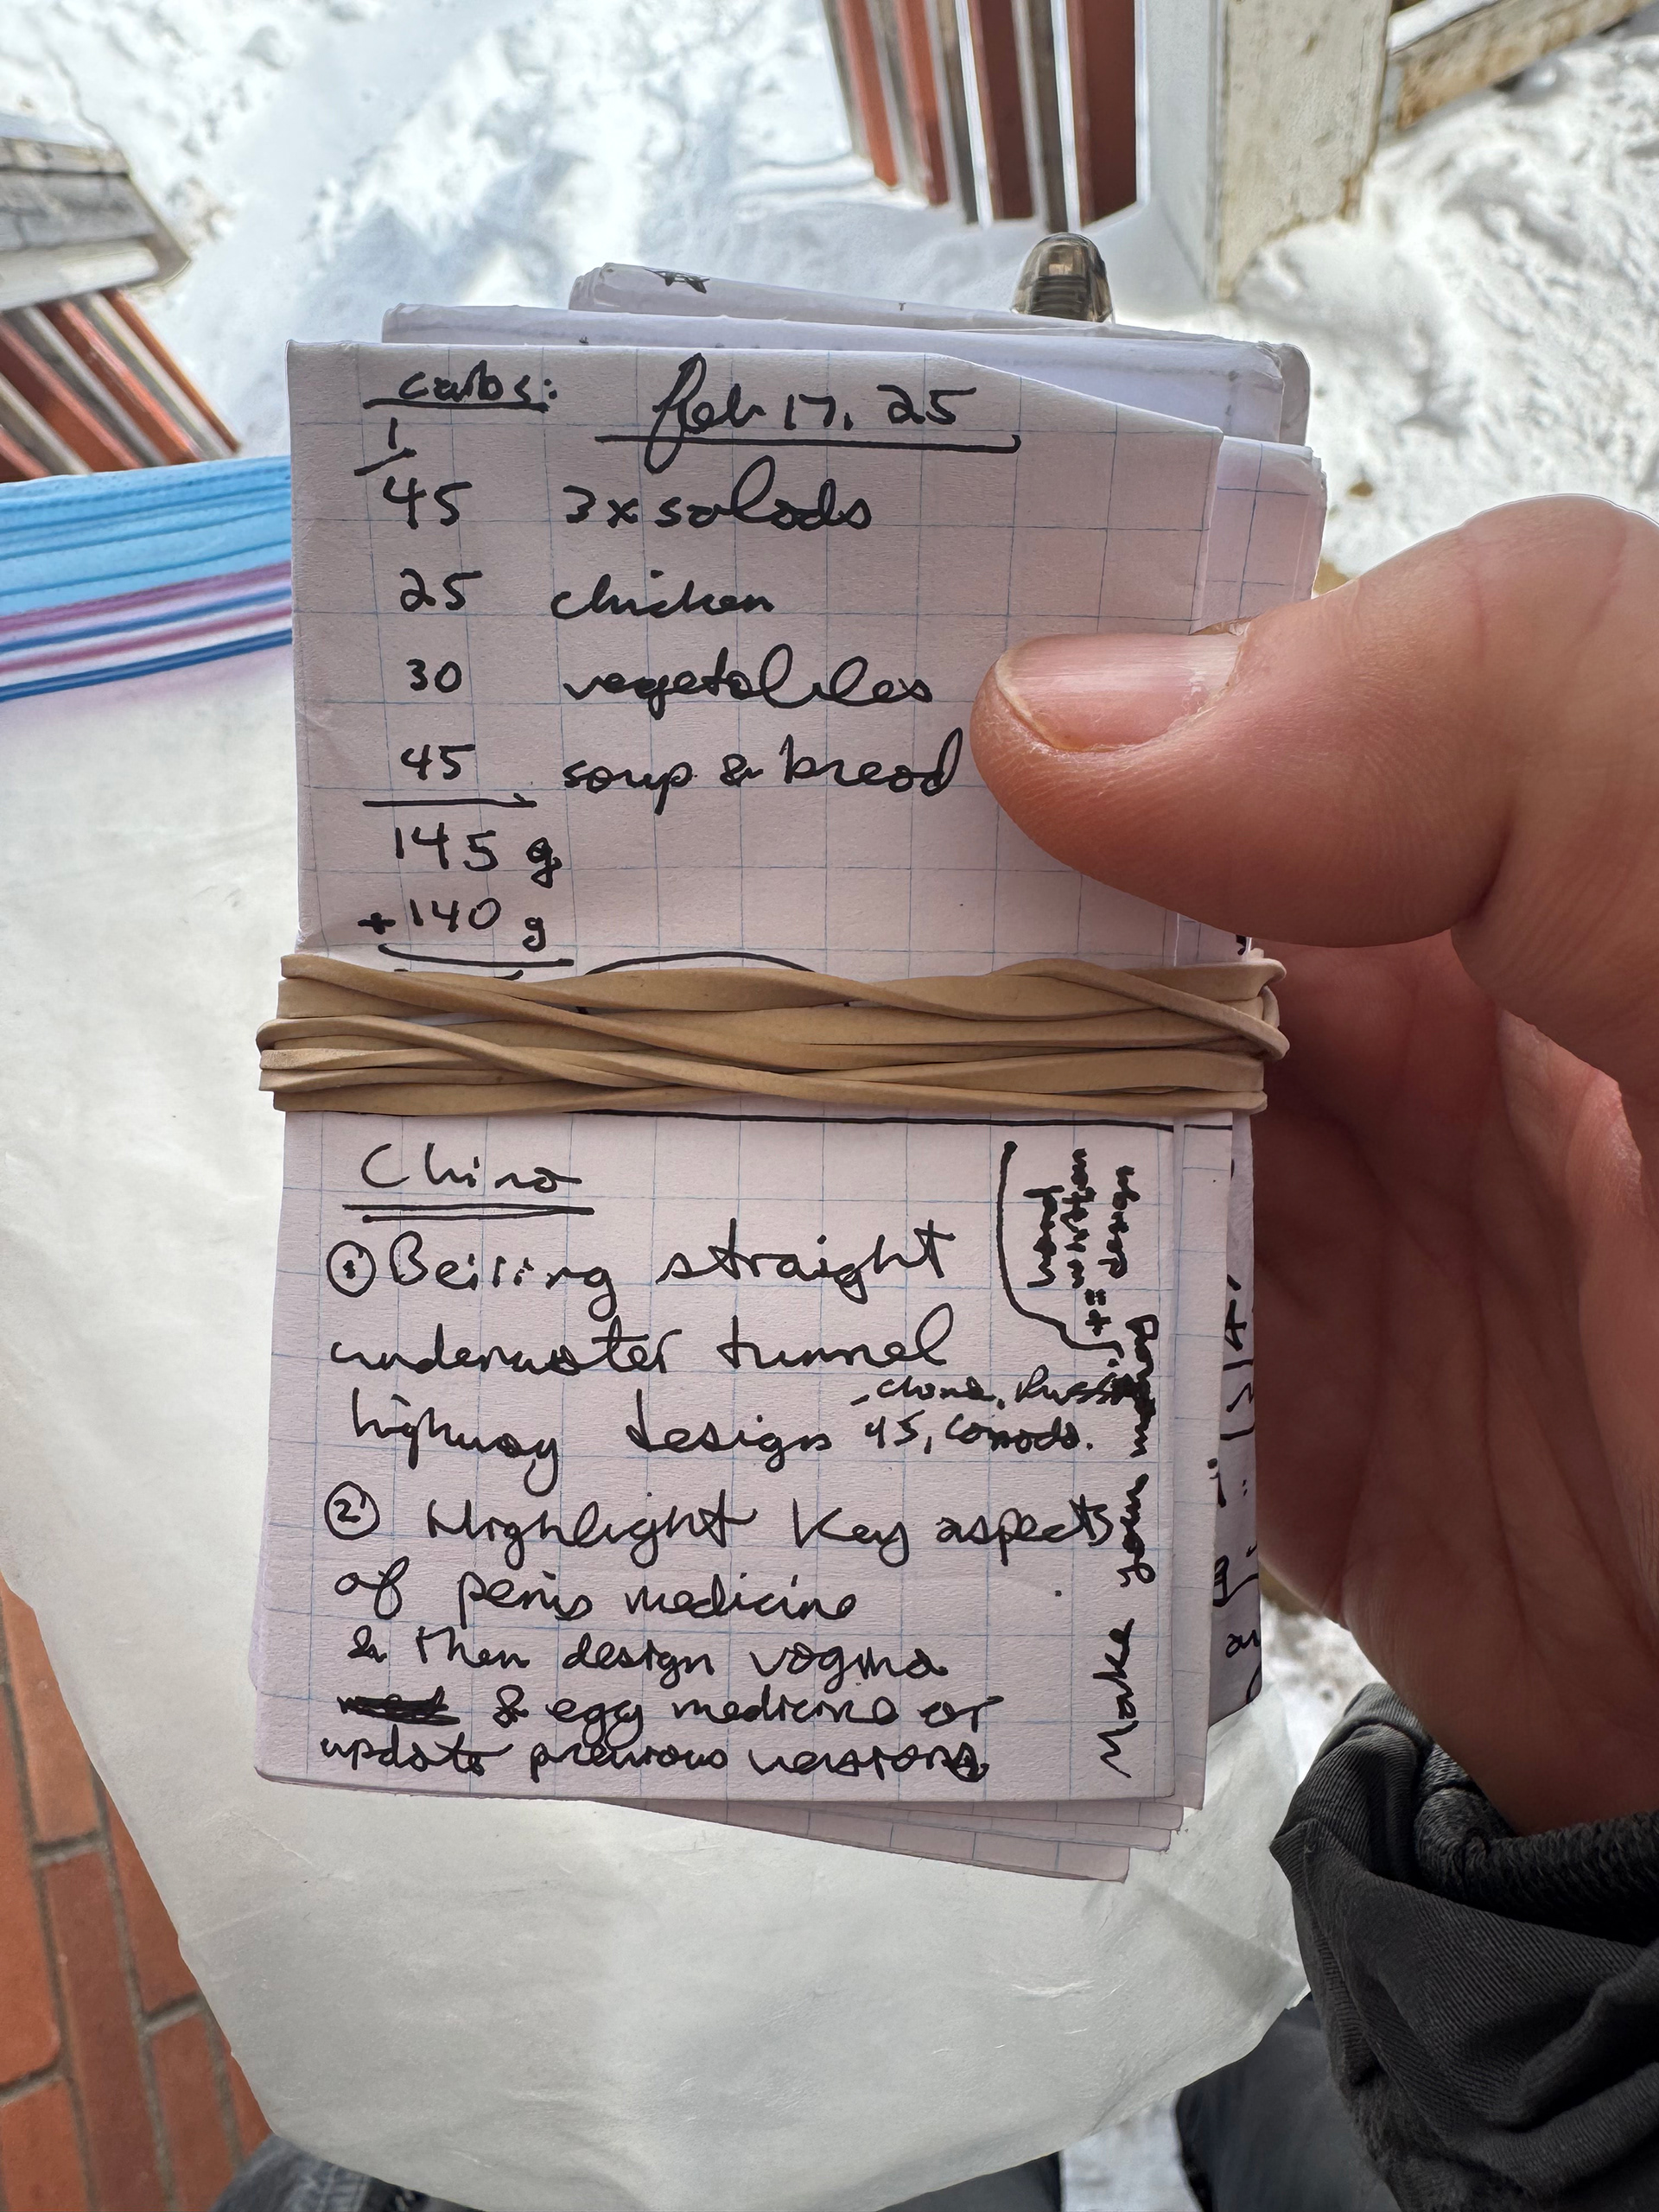 carbs: Feb 17, 25
1
45 3x salads
25 chicken
30 vegetables
45 soup & bread
145 g
+140 g
China
① Beijing straight
underwater tunnel
highway design
- China, Russia,
US, Canada.
② Highlight key aspects
of penis medicine
& then design vagina
& egg medicine or
update previous versions
hand
written
design
Make your